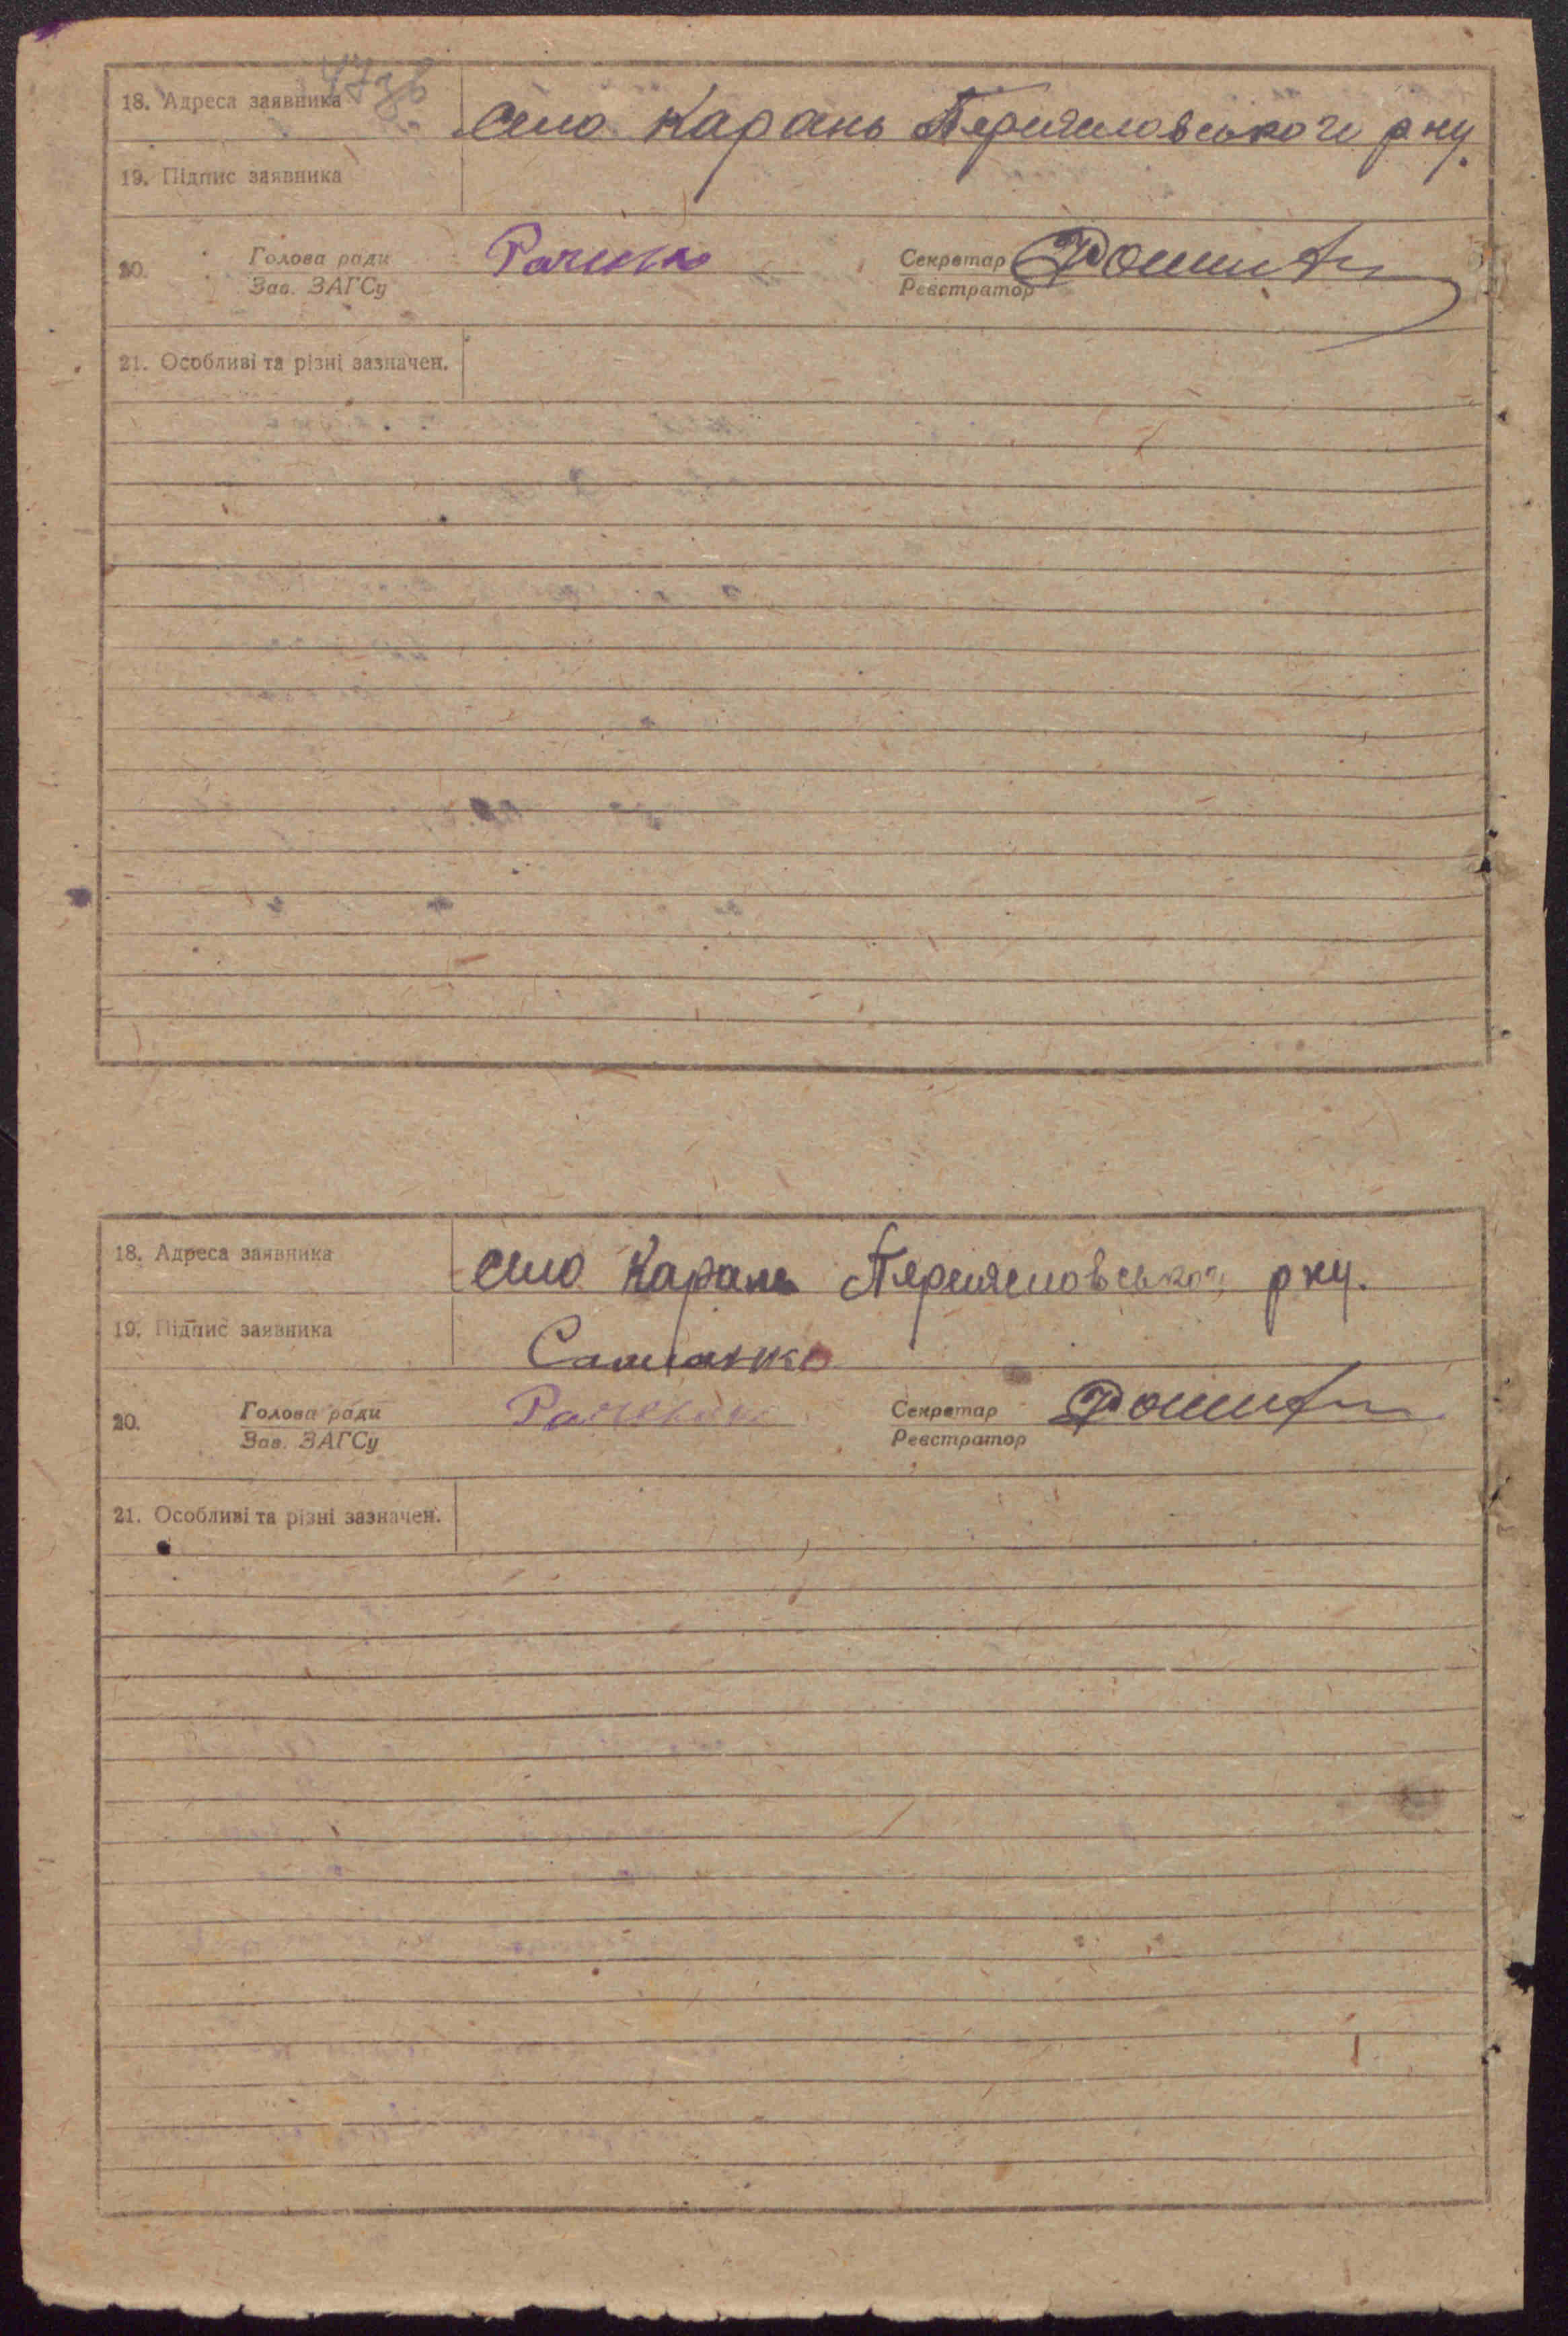 47зв
18. Адреса заявника село Карань Переяславського р-ну.
19. Підпис заявника
20. Голова ради Секретар
Зав. ЗАГСу Реєстратор
21. Особливі та різні зазначен.
18. Адреса заявника село Карань Переяславського р-ну.
19. Підпис заявника
20. Голова ради Секретар
Зав. ЗАГСу Реєстратор
21. Особливі та різні зазначен.